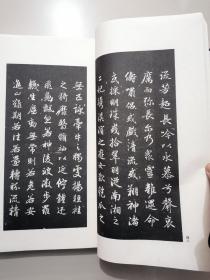 流芳超長吟以永慕兮聲哀
厲而彌長爾乃衆靈雜遝命
儔嘯侶或戲清流或翔神渚
或采明珠或拾翠羽從南湘之
二妃攜漢濱之游女歎匏瓜之
無匹詠牽牛之獨處揚輕袿
之猗靡翳脩袖以延佇體迅
飛鳧飄忽若神陵波微步羅
韈生塵動無常則若危若安
進止難期若往若還轉眄流精